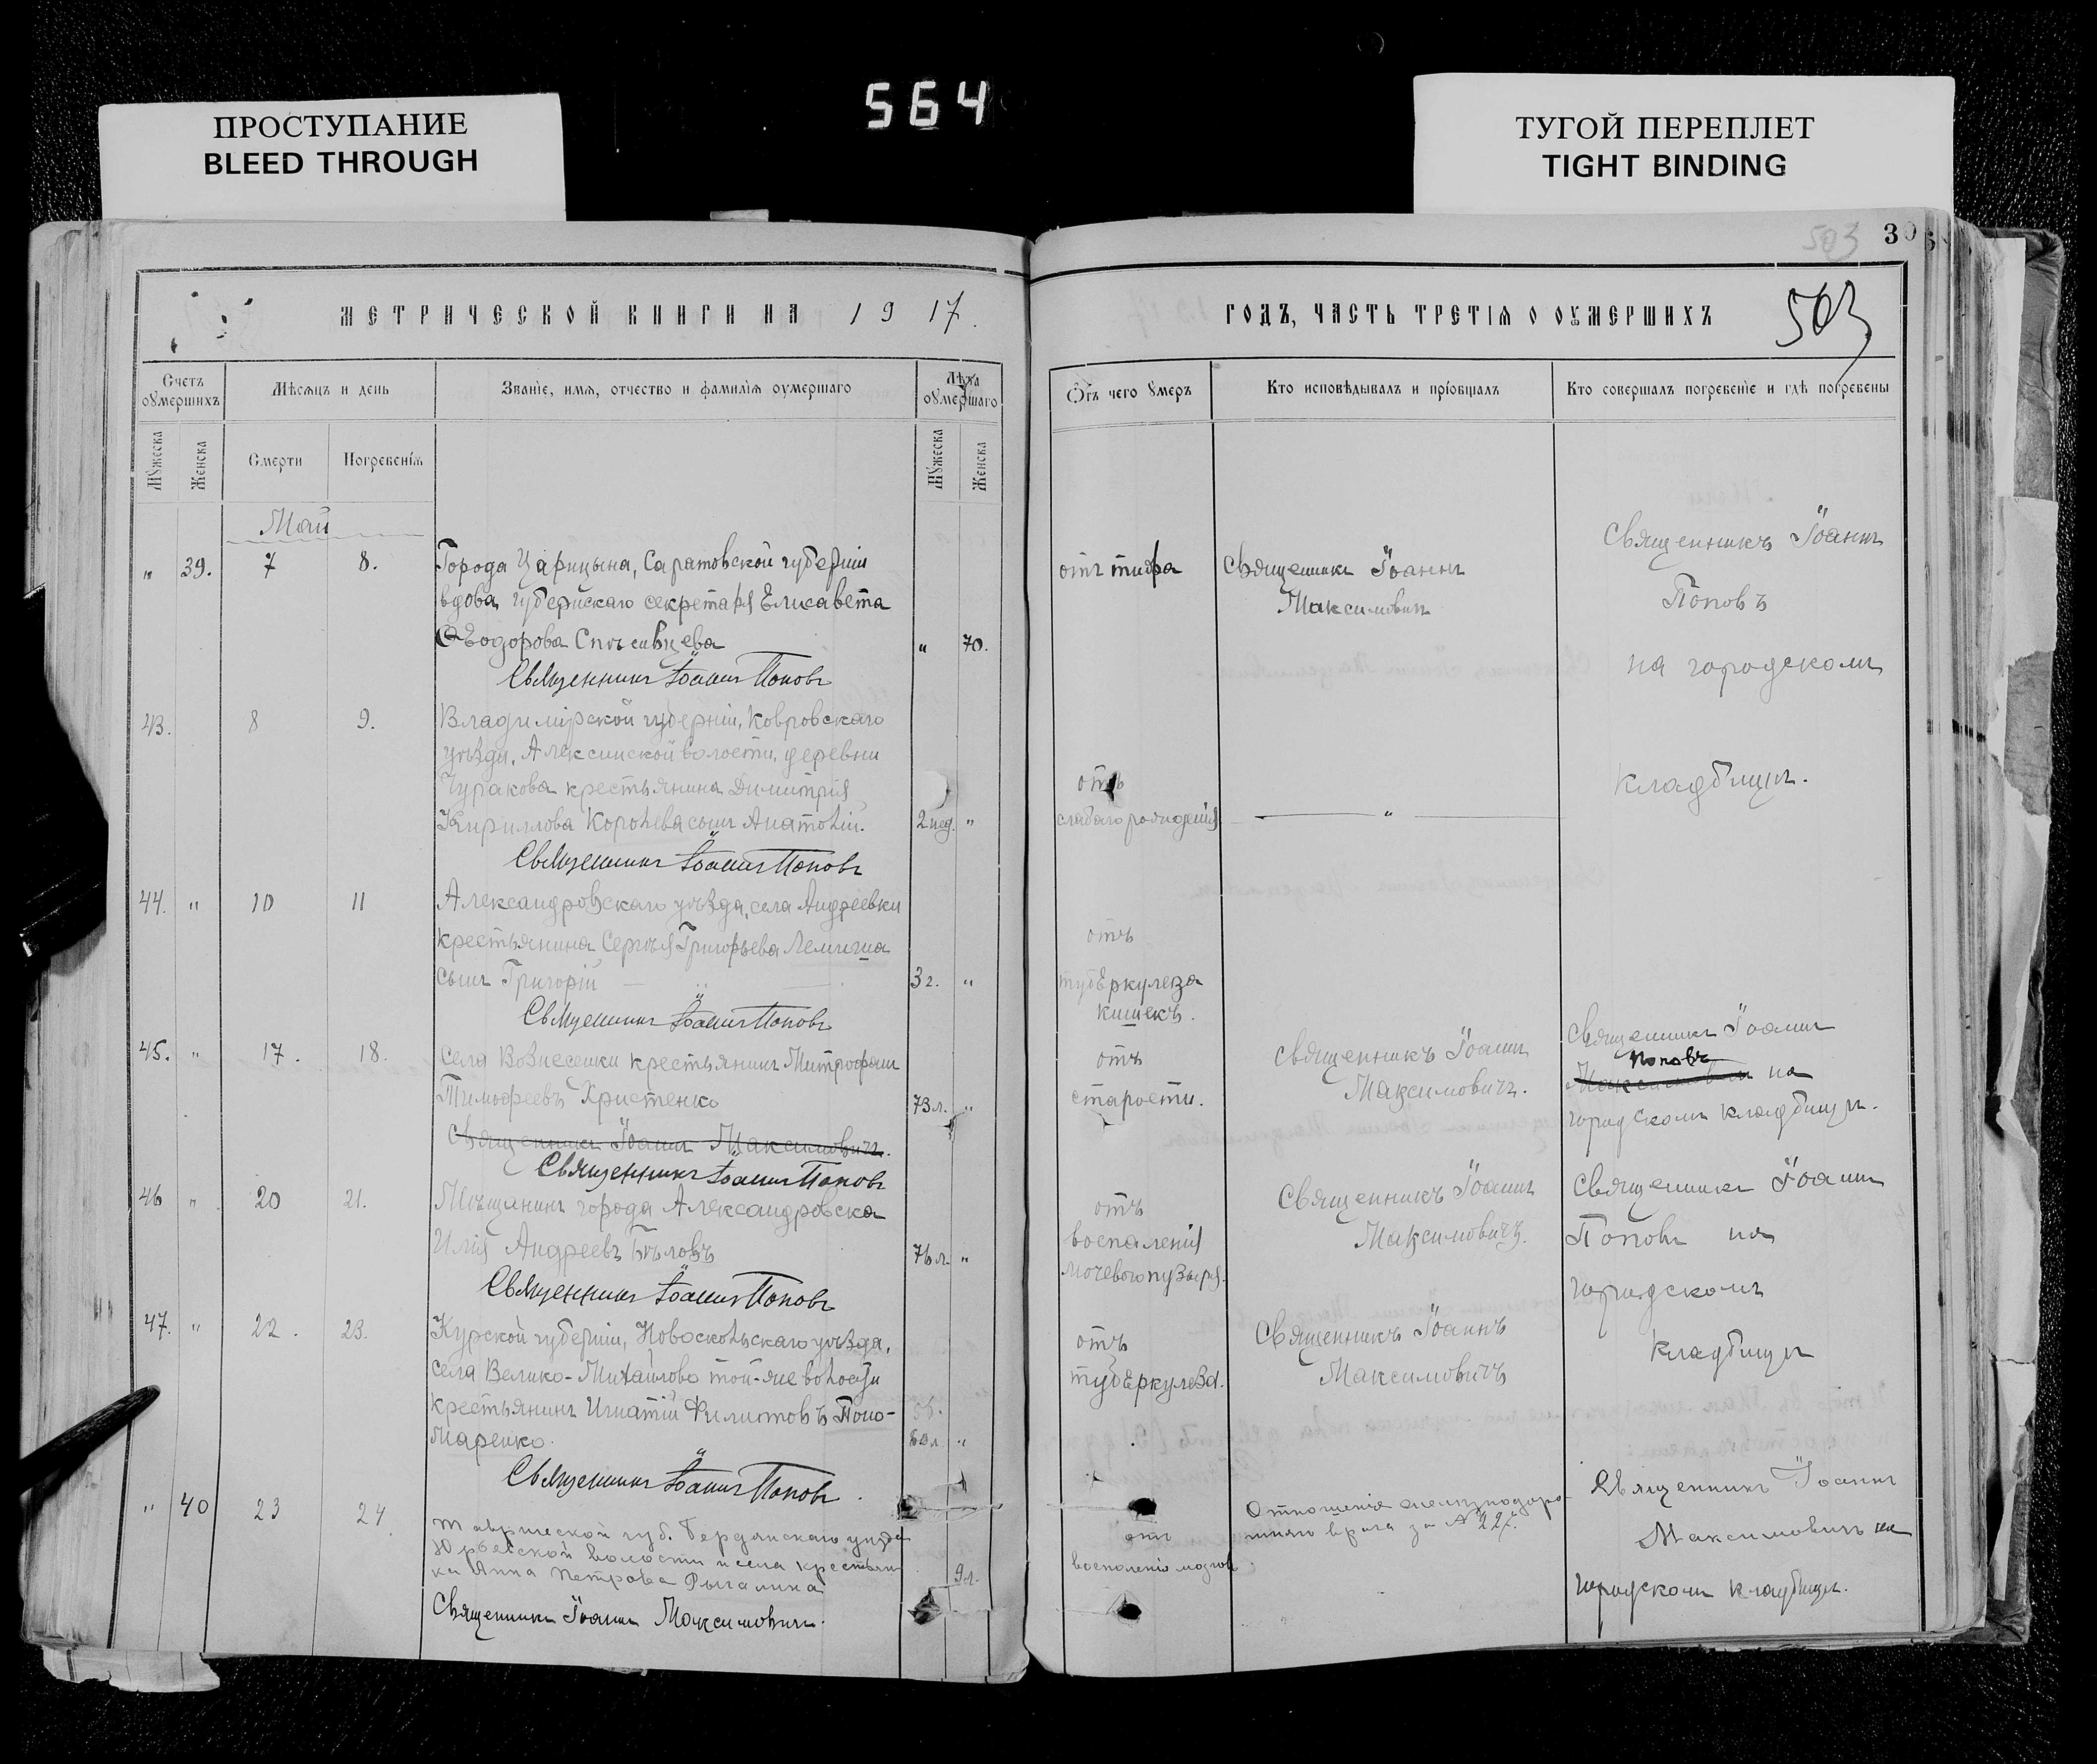 564
ПРОСТУПАНИЕ
BLEED THROUGH
ТУГОЙ ПЕРЕПЛЕТ
TIGHT BINDING
503
МЕТРИЧЕСКОЙ КНИГИ НА 1917.
ГОДЪ, ЧАСТЬ ТРЕТІЯ О ОУМЕРШИХЪ
503
Счетъ оумершихъ
Мѣсяцъ и день
Званіе, имя, отчество и фамилія оумершаго
Лѣта оумершаго
Отъ чего умеръ
Кто исповѣдывалъ и пріобщалъ
Кто совершалъ погребеніе и гдѣ погребены
Мужеска
Женска
Смерти
Погребенія
Мужеска
Женска
Май
" 39. 7 8.
Города Царицына, Саратовской губерніи
вдова губернскаго секретаря Елисавета
Ѳеодорова Спѣсивцева " 70.
Священникъ Іоаннъ Поповъ
отъ тифа
Священникъ Іоаннъ
Максимовичъ
Священникъ Іоаннъ
Поповъ
на городскомъ
кладбищѣ.
43. 8 9.
Владимірской губерніи, Ковровскаго
уѣзда, Алексинской волости, деревни
Чуракова крестьянина Димитрія
Кириллова Королева сынъ Анатолій. 2 нед. "
Священникъ Іоаннъ Поповъ
отъ
слабаго рожденія
"
44. " 10 11
Александровскаго уѣзда, села Андреевки
крестьянина Сергѣя Григорьева
сынъ Григорій " 3 г. "
Священникъ Іоаннъ Поповъ
отъ
туберкулеза
кишекъ.
45. " 17. 18.
Села Вознесенки крестьянинъ Митрофанъ
Тимофеевъ Христенко 73 л. "
Священникъ Іоаннъ Максимовичъ.
Священникъ Іоаннъ Поповъ
отъ
старости.
Священникъ Іоаннъ
Максимовичъ.
Священникъ Іоаннъ
Поповъ
Максимовичъ на
городскомъ кладбищѣ.
46 " 20 21.
Мѣщанинъ города Александровска
Илія Андреевъ Бѣловъ "
Священникъ Іоаннъ Поповъ
отъ
воспаленія
мочевого пузыря.
Священникъ Іоаннъ
Максимовичъ.
Священникъ Іоаннъ
Поповъ на
городскомъ
кладбищѣ
47. " 22. 23.
Курской губерніи, Новоскольскаго уѣзда,
села Велико-Михайлово той-же волости
крестьянинъ Игнатій Филиповъ Поно-
маренко. "
Священникъ Іоаннъ Поповъ.
отъ
туберкулеза.
Священникъ Іоаннъ
Максимовичъ
" 40 23 24.
Таврической губ. Бердянскаго уѣзда
волости и села крестьян
ка Анна Петрова 9 л.
Священникъ Іоаннъ Максимовичъ.
отъ
воспаленія мозговъ
Отношеніе желѣзнодоро
жнаго врача за №
Священникъ Іоаннъ
Максимовичъ на
городскомъ кладбищѣ.